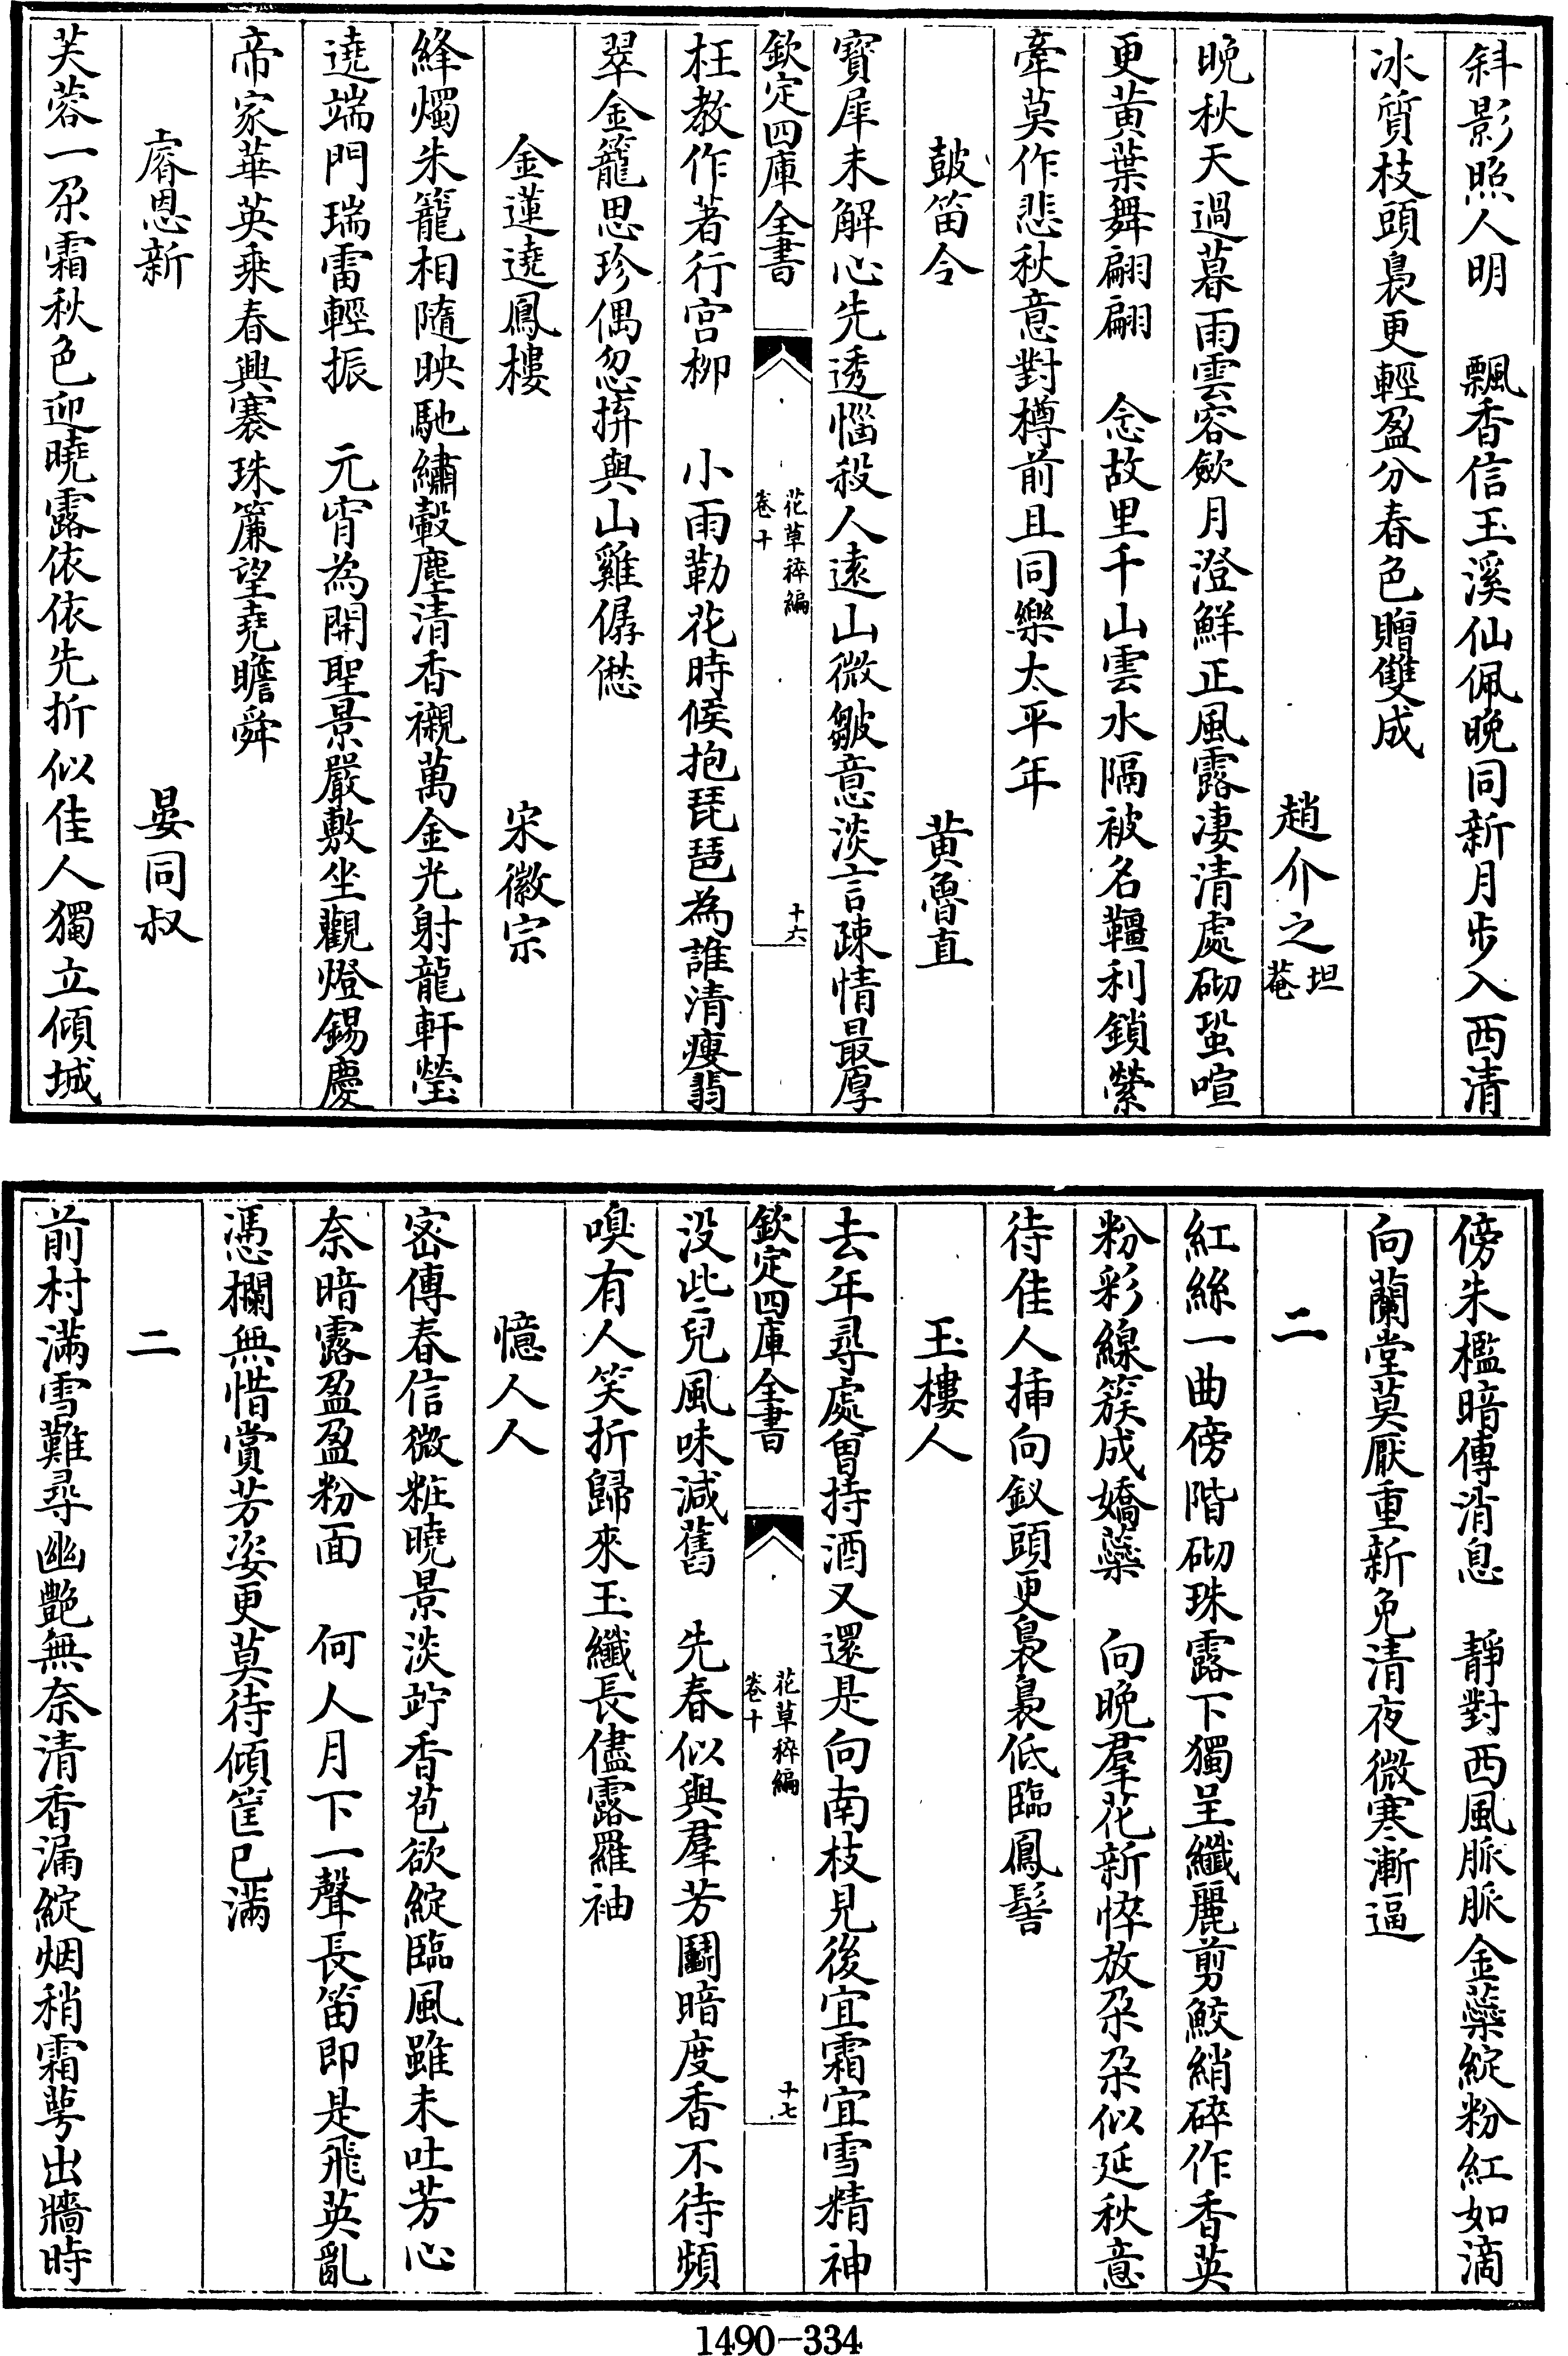 斜影照人明　飄香信玉溪仙佩晚同新月步入西清
冰質枝頭裊更輕盈分春色贈雙成
趙介之坦菴
晚秋天過暮雨雲容歛月澄鮮正風露凄清處砌蛩喧
更黃葉舞翩翩　念故里千山雲水隔被名韁利鎖縈
牽莫作悲秋意對樽前且同樂太平年
鼓笛令　黃魯直
寳犀未解心先透惱殺人遠山微皺意淡言疎情最厚
欽定四庫全書　花草稡編　卷十　十六
枉教作著行宫柳　小雨勒花時候抱琵琶為誰清瘦翡
翠金籠思珍偶忽拚與山雞僝僽
金蓮遶鳳樓　宋徽宗
絳燭朱籠相隨映馳繡轂塵清香襯萬金光射龍軒瑩
遶端門瑞雷輕振　元宵為開聖景嚴敷坐觀燈錫慶
帝家華英乘春興褰珠簾望堯瞻舜
睿恩新　晏同叔
芙蓉一朶霜秋色迎曉露依依先折似佳人獨立傾城
傍朱檻暗傳消息　靜對西風脈脈金蘂綻粉紅如滴
向蘭堂莫厭重新免清夜微寒漸逼
二
紅絲一曲傍階砌珠露下獨呈纖麗剪鮫綃碎作香英
粉彩線簇成嬌蘂　向晚羣花新悴放朶朶似延秋意
待佳人揷向釵頭更裊裊低臨鳳髻
玉樓人
去年尋處曾持酒又還是向南枝見後宜霜宜雪精神
欽定四庫全書　花草稡編　卷十　十七
没此兒風味減舊　先春似與羣芳鬭暗度香不待頻
嗅有人笑折歸來玉纖長儘露羅袖
憶人人
密傳春信微粧曉景淡竚香苞欲綻臨風雖未吐芳心
奈暗露盈盈粉面　何人月下一聲長笛即是飛英亂
憑欄無惜賞芳姿更莫待傾筐已滿
二
前村滿雪難尋幽艷無奈清香漏綻烟稍霜萼出牆時
1490-334